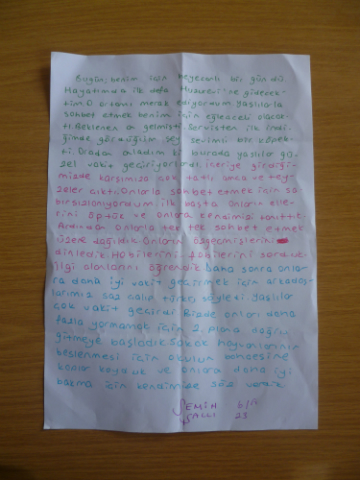 Bugün benim için heyecanlı bir gündü.
Hayatımda ilk defa Huzurevi'ne gidecek-
tim.O ortamı merak ediyordum yaşlılarla
sohbet etmek benim için eğlenceli olacak-
tı.Beklenen an gelmişti.Servisten ilk indi-
ğimde gördüğüm şey sevimli bir köpek-
ti.Oradan anladım ki burada yaşlılar gü-
zel vakit geçiriyorlardı.İçeriye girdiği-
mizde karşımıza çok tatlı amca ve tey-
zeler çıktı.Onlarla sohbet etmek için sa-
bırsızlanıyordum ilk başta onların elle-
rini öptük ve onlara kendimizi tanıttık.
Ardından onlarla tek tek sohbet etmek
üzere dağıldık.Onların özgeçmişlerini
dinledik.Hobilerini fobilerini sorduk
ilgi alanlarını öğrendik.Daha sonra onla-
ra daha iyi vakit geçirmek için arkadaş-
larımız saz çalıp türkü söyledi yaşlılar
çok vakit geçirdi Bizde onları daha
fazla yormamak için 2. plana doğru
gitmeye başladık.Sokak hayvanlarının
beslenmesi için okulun bahçesine
kaplar koyduk ve onlara daha iyi
bakma için kendimize söz verdik
SEMİH 6/C
SALLI 23